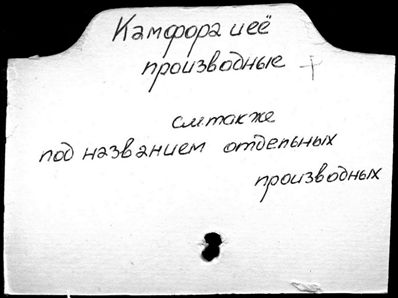 Камфора и её
производные
см. также
под названием отдельных
производных